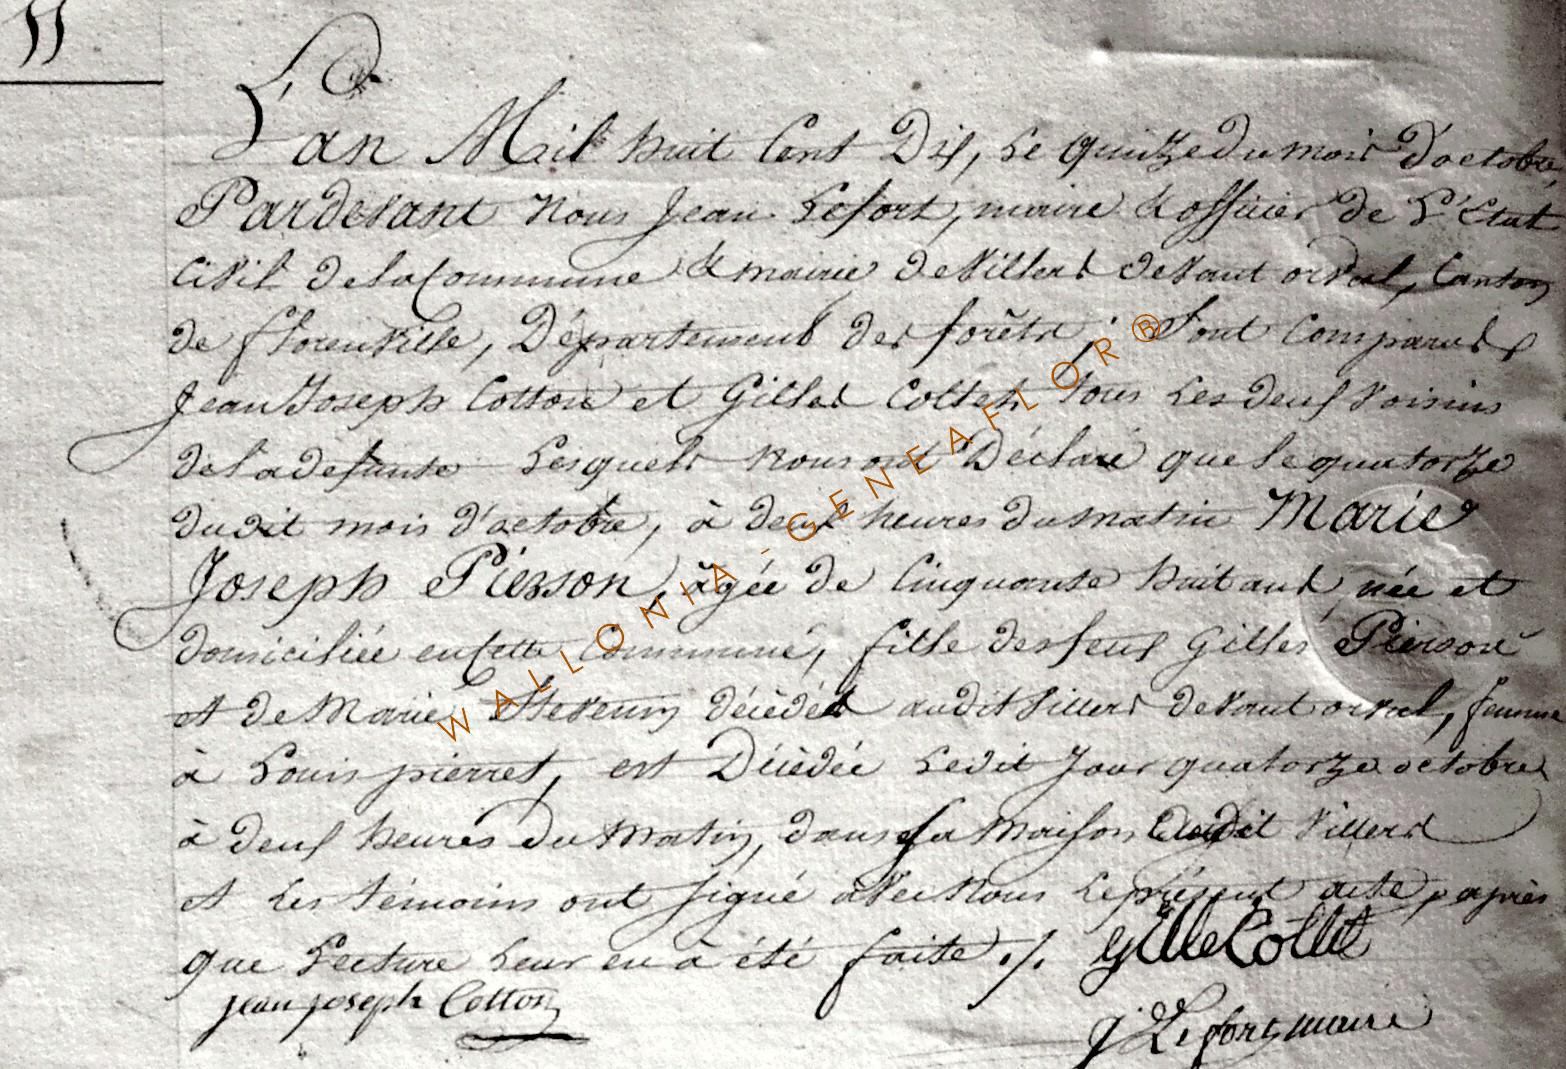 L'an Mil huit Cent Dix, Le quinze du mois d'octobre,
Pardevant Nous Jean Lefort, maire & officier de L'Etat
Civil de la Commune & mairie de Villers devant orval, Canton
de florenville, Département des forêts; Sont Comparus
Jean Joseph Cotton et Gilles Collet tous Les deux Voisins
de la defunte Lesquels nous ont Déclaré que le quatorze
du dit mois d'octobre, à deux heures du matin Marie
Joseph Pierson, agée de Cinquante huit ans, née et
domiciliée en Cette Commune, fille des feux Gilles Pierson
et de Marie Stevenin décèdés audit Villers devant orval, femme
à Louis pierret, est Décèdée Ledit Jour quatorze octobre
à deux heures du Matin, dans sa Maison audit Villers
et Les témoins ont signé avec Nous Le présent acte, après
que Lecture Leur en a été faite ./.
Gille Collet
jean joseph Cotton
J Lefort, maire
WALLONIA-GENEAFLOR®